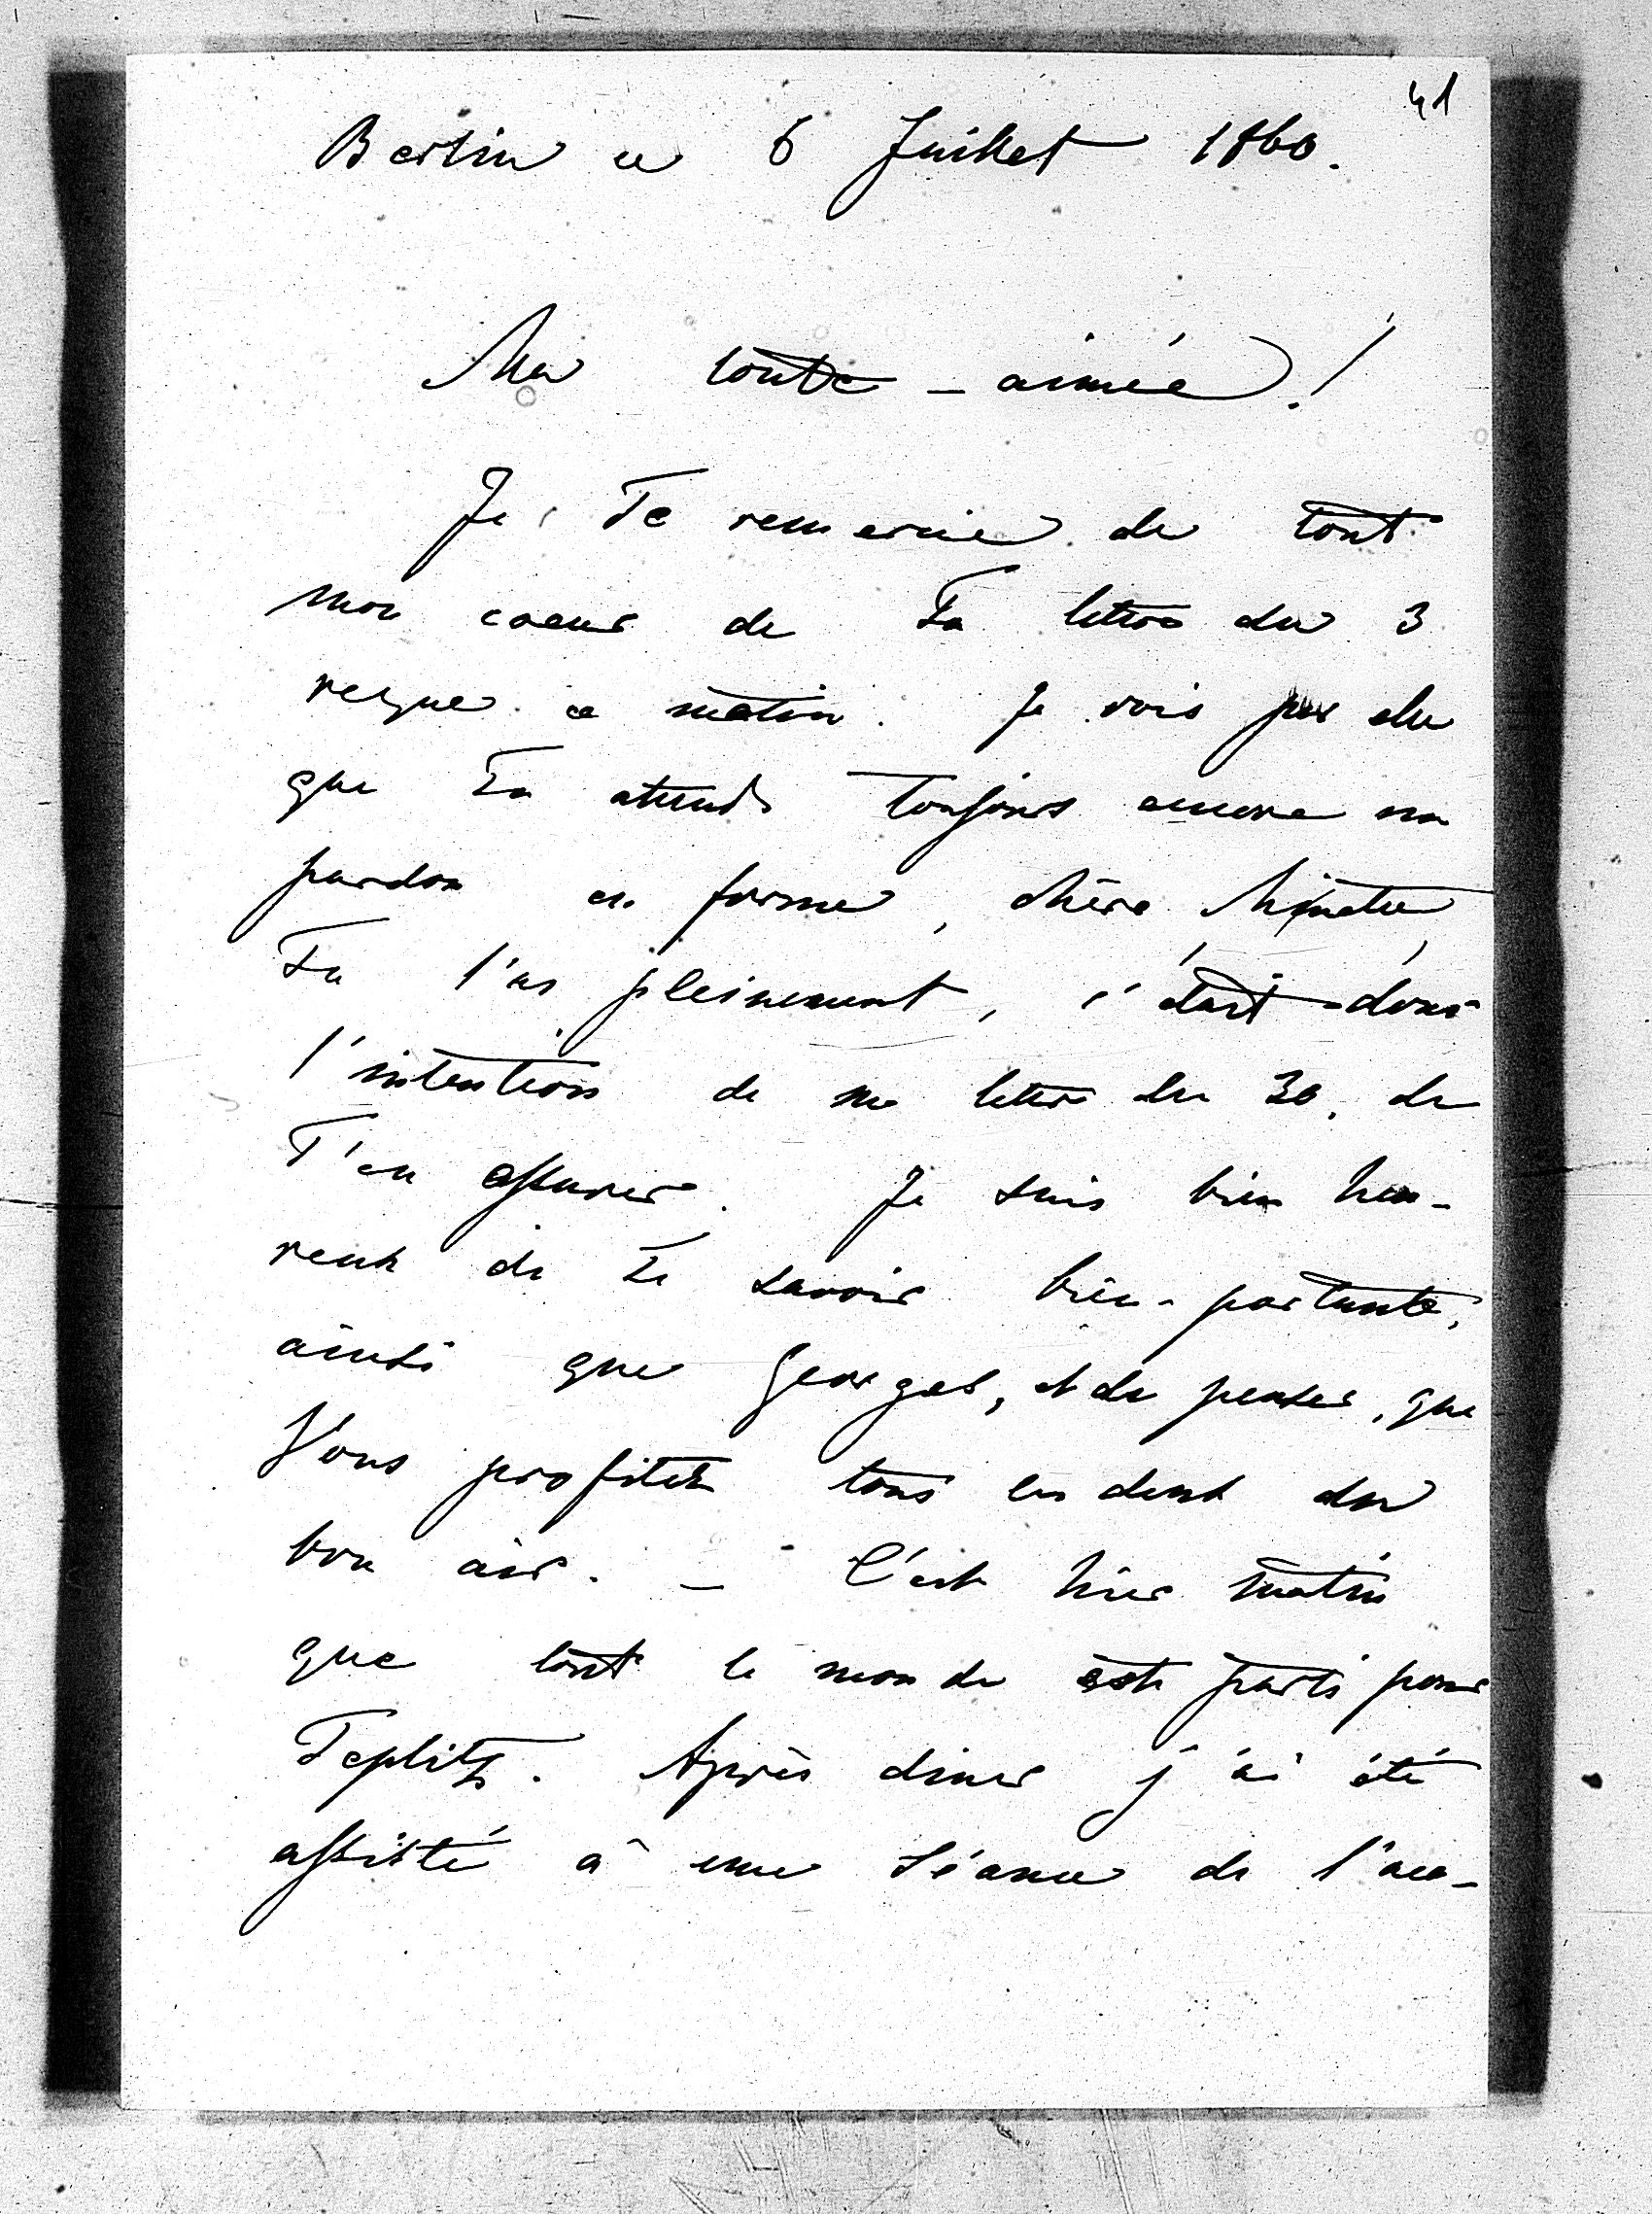 41
Berlin ce 6 Juillet 1860.
Ma toute-aimée!
Je Te remercie de tout
mon coeur de Ta lettre du 3
reçue ce matin. Je vois par elle
que Tu attends toujours encore mon
pardon en forme, chère
Tu l'as pleinement, c'était donc
l'intention de ma lettre du 30. de
T'en assurer. Je suis bien heu-
reux de Te savoir bien-portante,
ainsi que Georges, et de penser, que
Vous profitez tous les deux du
bon air. — C'est hier matin
que tout le monde est parti pour
Teplitz. Après diner j'ai été
assisté à une séance de l'aca-